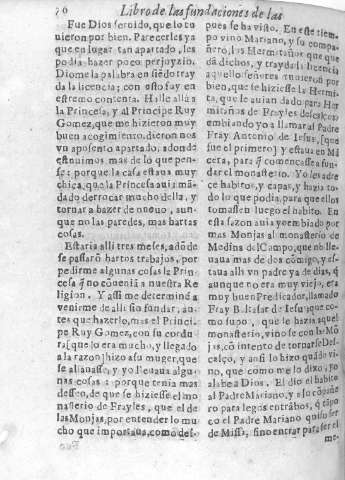 Libro de las fundaciones de las
Fue Dios seruido, que lo tu
uieron por bien. Parecerles ya
que en lugar tan apartado, les
podia hazer poco perjuyzio.
Diome la palabra en siẽdo tray
da la licencia; con esto fuy en
estremo contenta. Halle alli a
la Princesa, y al Principe Ruy
Gomez, que me hizieron muy
buen acogimiento, dieron nos
vn aposento apartado, adonde
estuuimos mas de lo que pen-
se: porque la casa estaua muy
chica, que la Princesa auia mã
dado derrocar mucho della, y
tornar a hazer de nueuo, aun-
que no las paredes, mas hartas
cosas.
Estaria alli tres meses, adõde
se passarõ hartos trabajos, por
pedirme algunas cosas la Prin
cesa q̃ no cõuenia a nuestra Re
ligion. Y assi me determinè a
venirme de alli sin fundar, an
tes que hazerlo, mas el Princi-
pe Ruy Gomez, con su cordu-
ra [que lo era mucho, y llegado
a la razon] hizo a su muger, que
se allanasse, y yo lleuaua algu-
nas cosas: porque tenia mas
desseo, de que se hiziesse el mo
nasterio de Frayles, que el de
las Monjas, por entender lo mu
cho que importaua, como des-
pues se ha visto. En este tiem-
po vino Mariano, y su compa
ñero, los Hermitaños que que
dã dichos, y trayda la licencia
aquellos señores tuuieron por
bien, que se hiziesse la Hermi
ta, que le auian dado para Her
mitaños de Frayles descalços
embiando yo a llamar al Padre
Fray Antonio de Iesus, [que
fue el primero] y estaua en Mã
cera, para q̃ començasse a fun-
dar el monasterio. Yo les adre
ce habitos, y capas, y hazia to-
do lo que podia, para que ellos
tomassen luego el habito. En
esta sazon auia yo embiado por
mas Monjas al monasterio de
Medina del Campo, que no lle
uaua mas de dos cõmigo, y es-
taua alli vn padre ya de dias, q̃
aunque no era muy viejo, era
muy buen Predicador, llamado
Fray Baltasar de Iesus, que co-
mo supo, que se hazia aquel
monasterio, vino se con las Mõ
jas, cõ intento de tornarse Des-
calço, y ansi lo hizo quãdo vi-
no, que como me lo dixo, yo
alabe a Dios. El dio el habito
al Padre Mariano, y a su cõpañe
ro para legos entrãbos, q̃ tãpo
co el Padre Mariano quiso ser
de Missa, sino entrar para ser el
me-